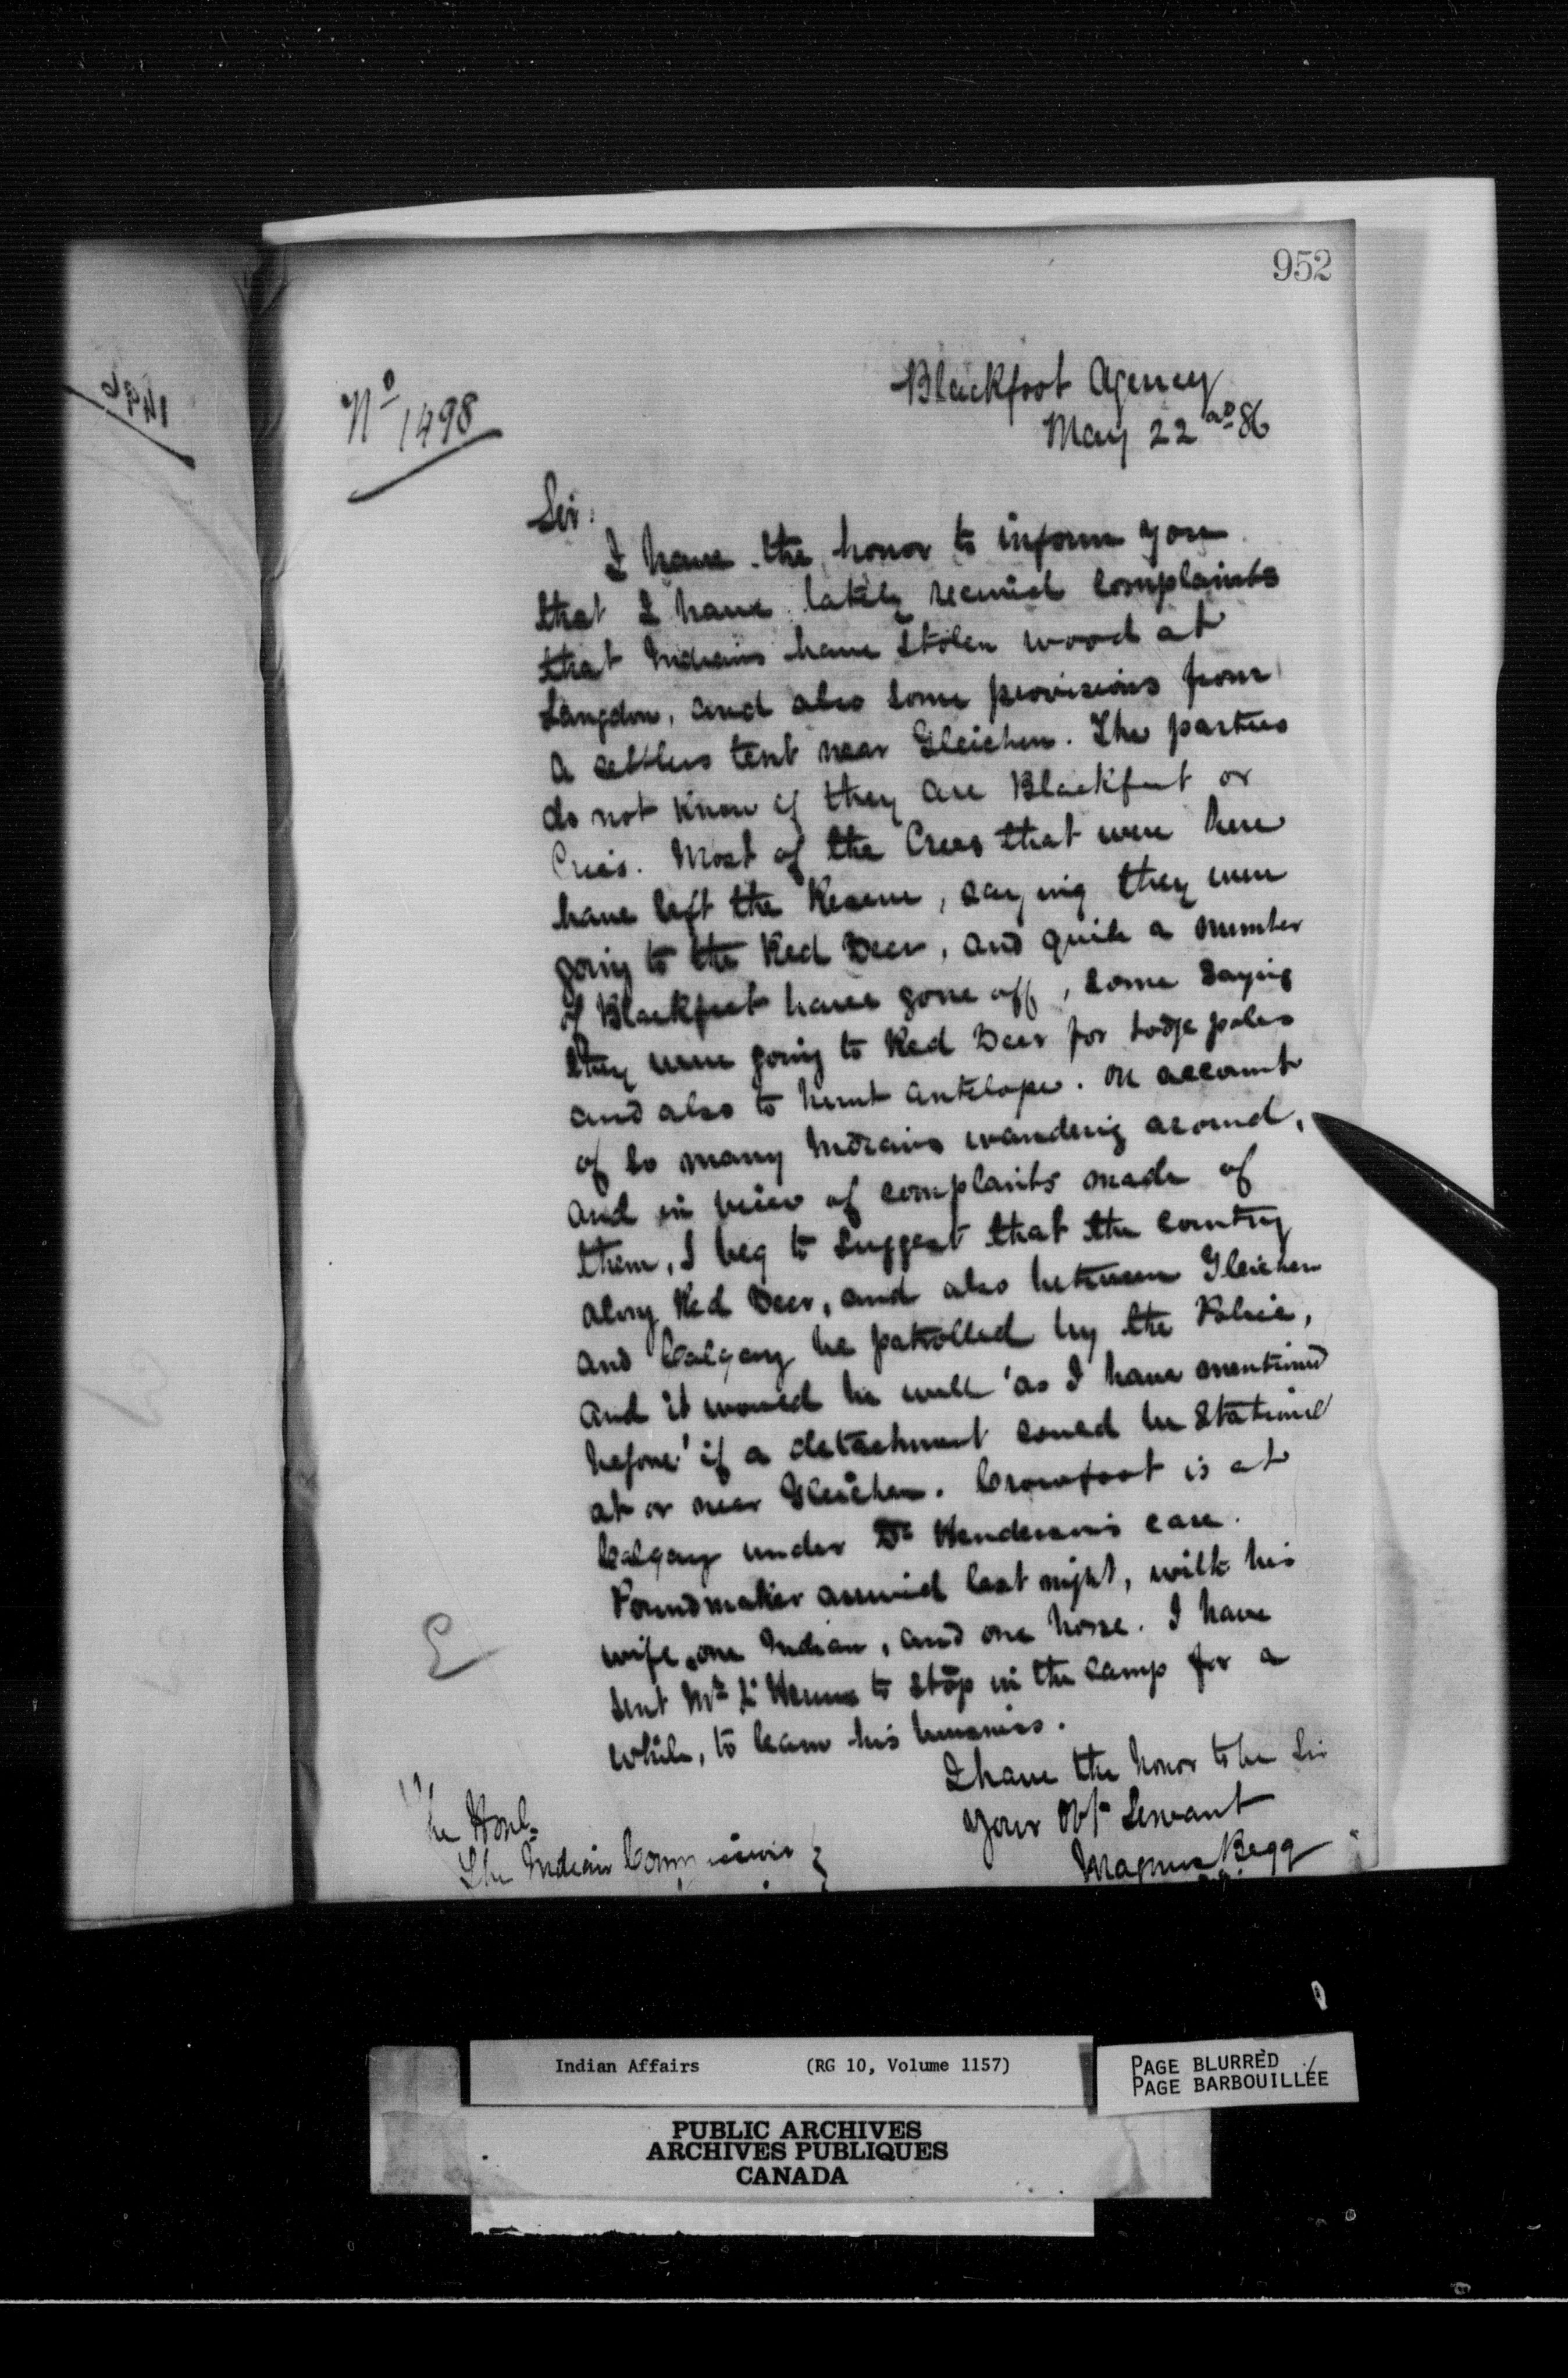 952
Nº 1498
Blackfoot Agency
May 22nd 86
Sir.
I have the honor to inform you
that I have lately received complaints
that Indians have stolen wood at
Langdon, and also some provisions from
a settlers tent near Gleichen. The parties
do not know if they are Blackfeet or
Crees. Most of the Crees that were here
have left the Reserve, saying they were
going to the Red Deer, and quite a number
of Blackfeet have gone off, some saying
they were going to Red Deer for lodge poles
and also to hunt antelope. On account
of so many Indians wandering around,
and in view of complaints made of
them, I beg to suggest that the country
along Red Deer, and also between Gleichen
and Calgary be patrolled by the Police,
and it would be well 'as I have mentioned
before' if a detachment could be stationed
at or near Gleichen. Crowfoot is at
Calgary under Dr Henderson's care.
Poundmaker arrived last night, with his
wife, one Indian, and one horse. I have
sent Mr L'Heureux to stop in the camp for a
while, to learn his business.
I have the honor to be Sir
Your Obt Servant
Magnus Begg
The Honl.
The Indian Commissioner
E
Indian Affairs (RG 10, Volume 1157)
PAGE BLURRED
PAGE BARBOUILLÉE
PUBLIC ARCHIVES
ARCHIVES PUBLIQUES
CANADA